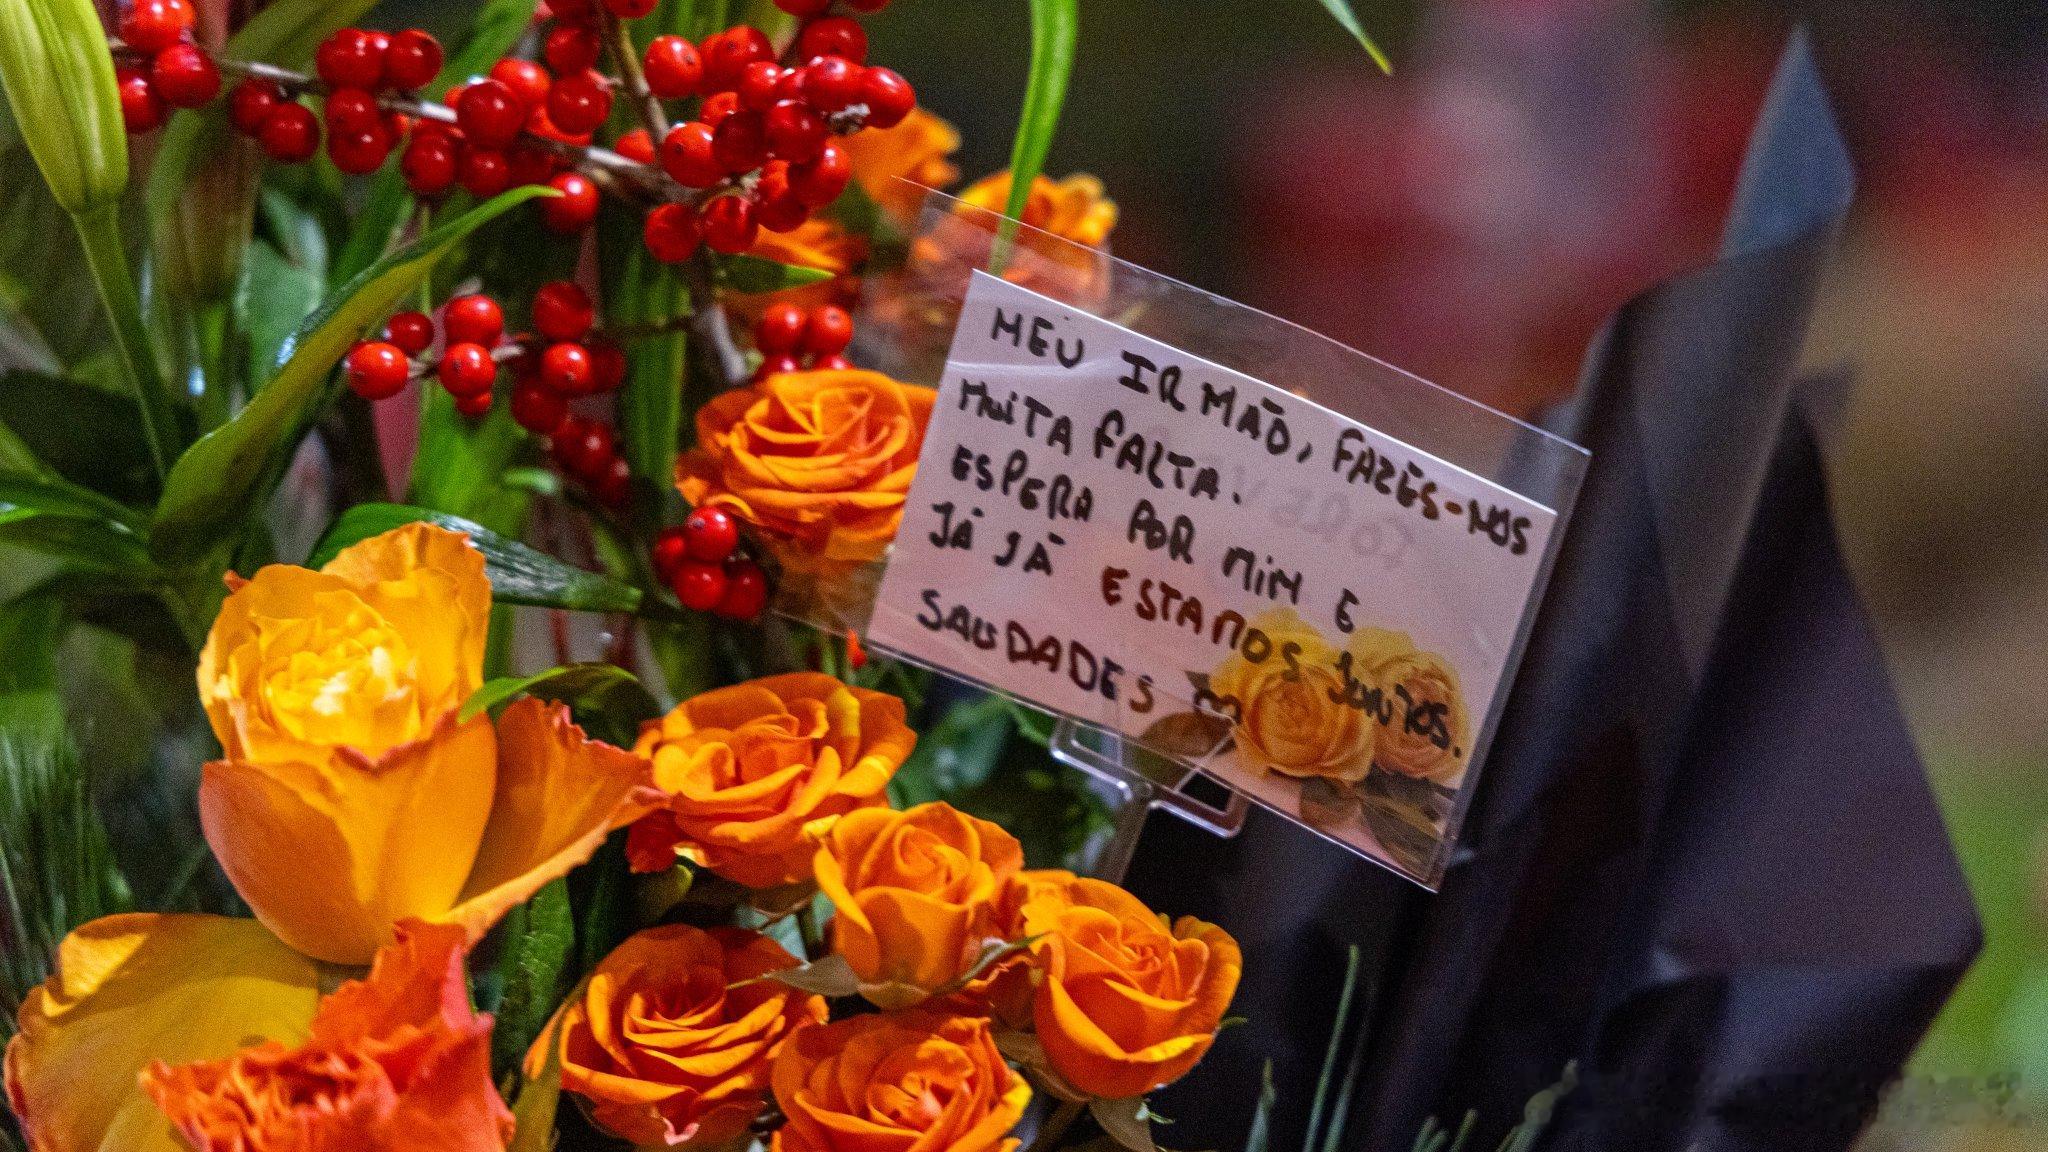 MEU IRMÃO, FAZES-NOS
MUITA FALTA.
ESPERA POR MIM E
JÁ JÁ ESTAMOS JUNTOS.
SAUDADES